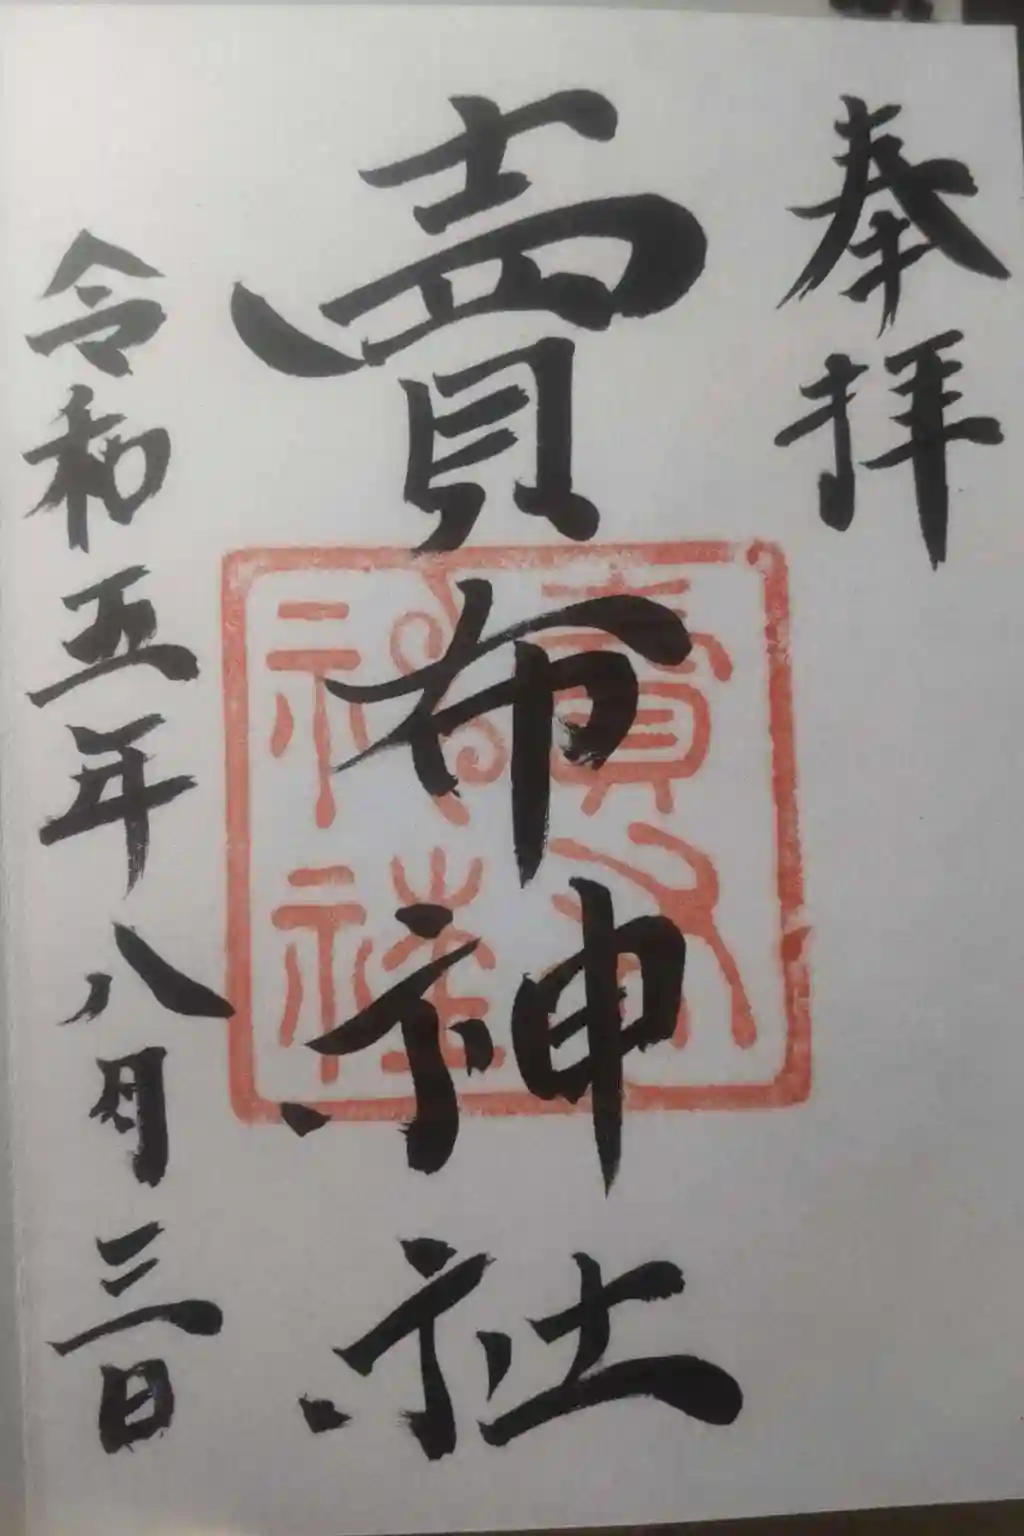 奉拝
賣布神社
令和五年八月三日
賣布
神社